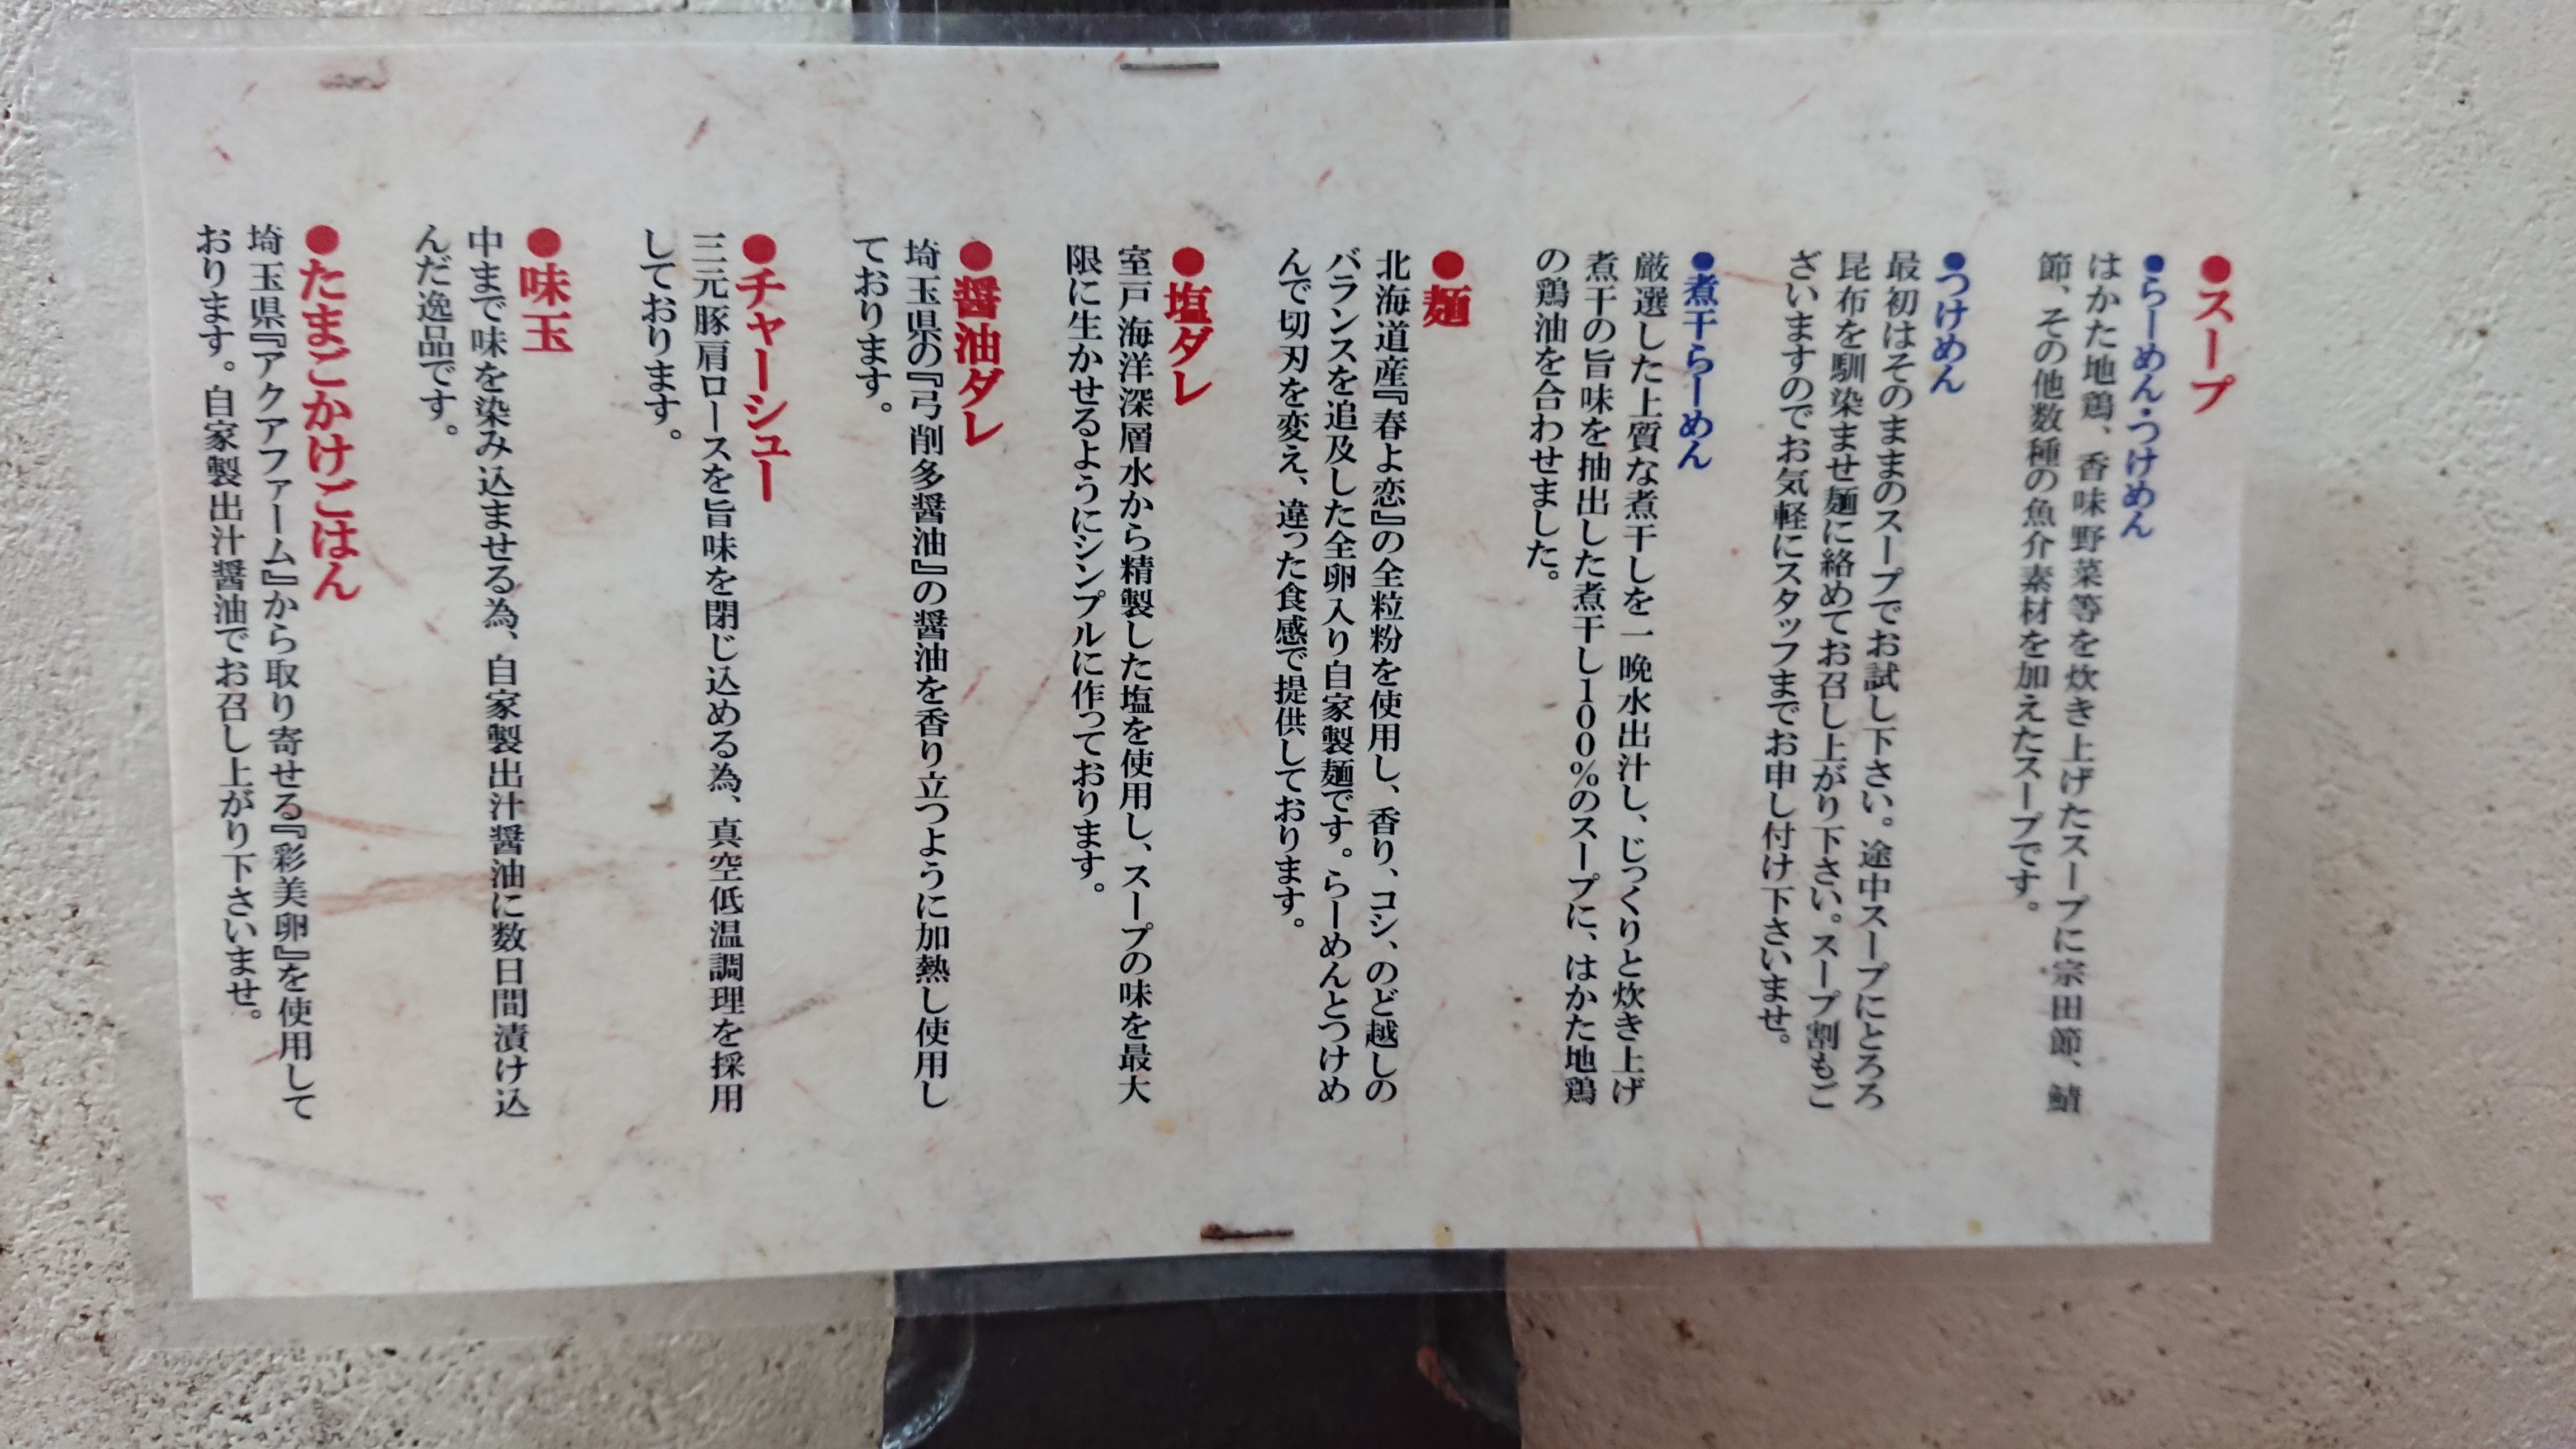 ●スープ
●らーめん・つけめん
はかた地鶏、香味野菜等を炊き上げたスープに宗田節、鯖
節、その他数種の魚介素材を加えたスープです。
●つけめん
最初はそのままのスープでお試し下さい。途中スープにとろろ
昆布を馴染ませ麺に絡めてお召し上がり下さい。スープ割もご
ざいますのでお気軽にスタッフまでお申し付け下さいませ。
●煮干らーめん
厳選した上質な煮干しを一晩水出汁し、じっくりと炊き上げ
煮干の旨味を抽出した煮干し100%のスープに、はかた地鶏
の鶏油を合わせました。
●麺
北海道産『春よ恋』の全粒粉を使用し、香り、コシ、のど越しの
バランスを追及した全卵入り自家製麺です。らーめんとつけめ
んで切刃を変え、違った食感で提供しております。
●塩ダレ
室戸海洋深層水から精製した塩を使用し、スープの味を最大
限に生かせるようにシンプルに作っております。
●醤油ダレ
埼玉県の『弓削多醤油』の醤油を香り立つように加熱し使用し
ております。
●チャーシュー
三元豚肩ロースを旨味を閉じ込める為、真空低温調理を採用
しております。
●味玉
中まで味を染み込ませる為、自家製出汁醤油に数日間漬け込
んだ逸品です。
●たまごかけごはん
埼玉県『アクアファーム』から取り寄せる『彩美卵』を使用して
おります。自家製出汁醤油でお召し上がり下さいませ。